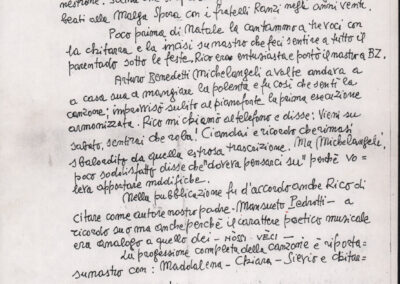 beati alla Malga Spora con i fratelli Ranzi negli anni venti.
Poco prima di Natale la cantammo a tre voci con
la chitarra, e la incisi su nastro che feci sentire a tutto il
parentado sotto le feste. Rico era entusiasta e portò il nastro a BZ.
Arturo Benedetti Michelangeli a volte andava a
casa sua a mangiare la polenta e fu così che sentì la
canzone; improvvisò subito al pianoforte la prima esecuzione
armonizzata. Rico mi chiamò al telefono e disse: Vieni su
sabato, sentirai che roba! Ci andai e ricordo che rimasi
sbalordito da quella estrosa trascrizione. Ma Michelangeli,
poco soddisfatto disse che "doveva pensarci su" perché vo=
leva apportare modifiche.
Nella pubblicazione fu d'accordo anche Rico di
citare come autore nostro padre - Mansueto Pedrotti - a
ricordo suo ma anche perché il carattere poetico musicale
era analogo a quello dei - NÒSSI VÈCI -
La professione completa della canzone è riporta=
su nastro con: Maddalena - Chiara - Silvio e chitar=